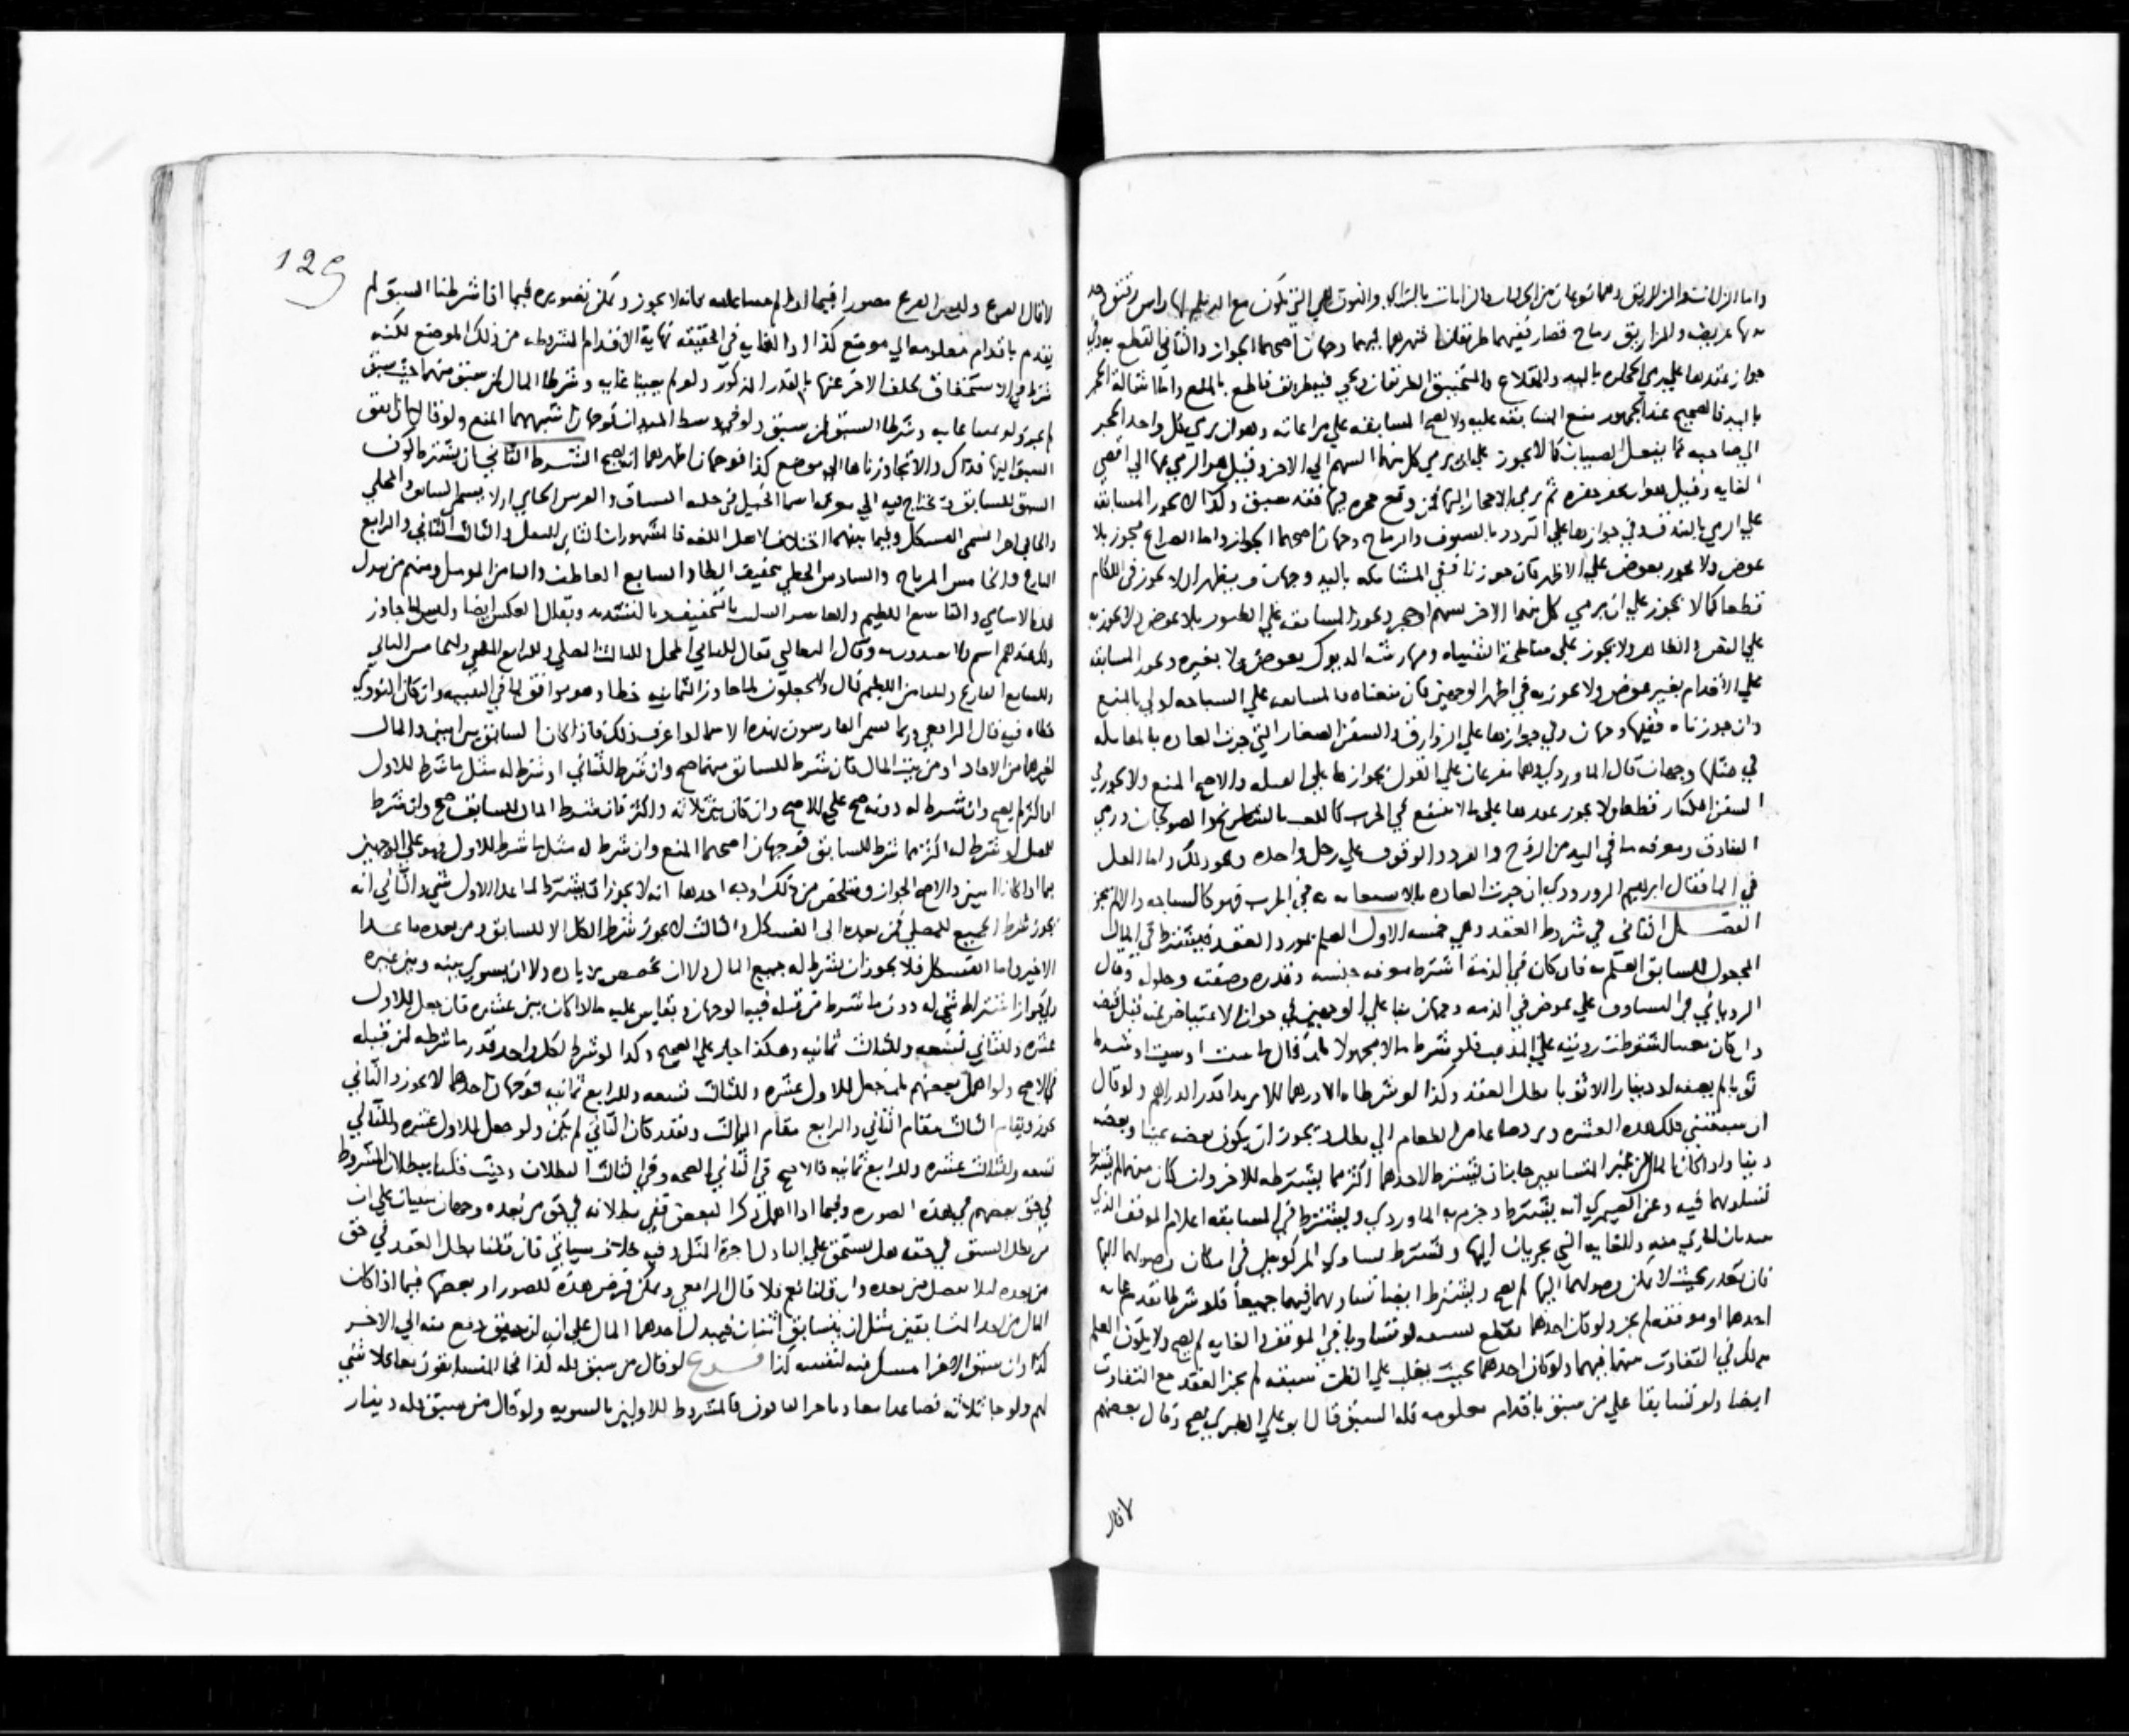 واما الزانات والمزاريق وهما نوعان من الحراب فالزانات بالزاي والنون هي التي تكون مع الديلم لها راس دقيق وحد
منها عريض والمزاريق رماح قصار ففيهما طريقان اشهرهما فيهما وجهان اصحهما الجواز والثاني القطع به وفي
جواز عقدها على رمي الحجارة باليد والمقلاع والمنجنيق الطريقان وعن طريق قاطع بالمنع واما اشالة الحجر
باليد فالصحيح عند الجمهور منع المسابقه عليه ولا يصح المسابقه على مراماته وهو ان يرمي كل واحد الحجر
الى صاحبه كما يفعل الصبيان كما لا يجوز على ان يرمي كل منهما السهم الى الاخر وقيل هو الرمي بها الى اقصى
الغايه وقيل هو ان يحفر حفره ثم يرمي الاحجار اليها فمن وقع حجره فيها فقد سبق وكذا لا يجوز المسابقه
على الرمي بالبندق وفي جوازها على التردد بالسيوف والرماح وجهان اصحهما الجواز واما الصراع فيجوز بلا
عوض ولا يجوز بعوض على الاظهر فان جوزنا ففي المشابكه باليد وجهان ويظهر ان لا يجوز في اللكام
قطعا كما لا يجوز على ان يرمي كل منهما الاخر بسهم او حجر ويجوز المسابقه على الطيور بلا عوض ولا يجوز به
على النص الظاهر ولا يجوز على مناطحة الشياه ومهارشة الديوك بعوض ولا بغيره ويجوز المسابقه
على الاقدام بغير عوض ولا يجوز به في اظهر الوجهين فان منعناه فالمسابقه على السباحه اولى بالمنع
وان جوزناه ففيها وجهان وفي جوازها على الزوارق والسفن الصغار التي جرت العاده بالمقاتله
في مثلها وجهان قال الماوردي وهما مفرعان على القول بجوازها على الفيله والاصح المنع ولا يجوز في
السفن الكبار قطعا ولا يجوز عقدها على ما لا ينفع في الحرب كاللعب بالشطرنج والصولجان ورمي
البنادق ومعرفه ما في اليد من الزوج والفرد والوقوف على رجل واحده ونحو ذلك واما
في الما فقال ابرهيم المروروذي ان جرت العاده بالاستعانه به في الحرب فهو كالسباحه والا لم يجز
الفصل الثاني في شروط العقد وهي خمسه الاول العلم بمورد العقد فيشترط في المال
المجعول للسابق العلم به فان كان في الذمة اشترط معرفه جنسه وقدره وصفته وحلوله وقال
الروياني في التساوق على عوض في الذمه وجهان بنا على الوجهين في جواز الاعتياض عنه قبل قبضه
وان كان معينا اشترطت رويته على المذهب فلو شرطا مالا مجهولا بان قال ما شيت او شيت او شرط
ثوبا لم يصفه او دينارا الا ثوبا بطل العقد وكذا لو شرطا دينارا الا درهما الا ان يريدا قدر الدراهم ولو قال
ان سبقتني فلك هذه العشره وترد صاعا من الطعام الي بطل ويجوز ان يكون بعضه عينا وبعضه
دينا واذا كان المال من غير المتسابقين جاز ان يشترط لاحدهما اكثر مما يشترطه للاخر وان كان منهما لم يشترط
تساويهما فيه وعن الصيمري انه يشترط وجزم به الماوردي ويشترط في المسابقه اعلام الموقف الذي
يبتديان الجري منه والغايه التي يجريان اليها ويشترط تساوي المركوبين في امكان وصولهما اليها
فان تقدر بحيث لا يمكن وصولهما اليها لم يصح ويشترط ايضا تساويهما فيهما جميعا فلو شرطا تقدم غايه
احدهما او موقفه لم يجز ولو كان احدهما يقطع بسبقه لو تساويا في الموقف والغايه لم يصح ولا يكون العلم
بذلك في التفاوت بينهما فيهما ولو كان احدهما بحيث يغلب على الظن سبقه لم يجز العقد مع التفاوت
ايضا ولو تسابقا على من سبق باقدام معلومه فله السبق قال ابو علي الطبري يصح وقال بعضهم
لا قال
129
لا قال الفرع وليس الفرع مصورا فيما اذا لم يعينا غايه فانه لا يجوز ويمكن تصويره فيما اذا شرطنا السبق لم
يتقدم باقدام معلومه الى موضع كذا اذ الغايه في الحقيقه نهاية الاقدام المشروطه من ذلك الموضع لكنه
شرط في الاستحقاق تخلف الاخر عنها بالقدر المذكور ولو لم يعينا غايه وشرطا المال لمن سبق منهما حيث سبق
لم يجز ولو عينا غايه وشرطا السبق لمن سبق ولو في وسط الميدان فوجهان اشبههما المنع ولو قالا ان اتفق
السبق اليها فذاك والا تجاوزناها الى موضع كذا فوجهان اظهرهما انه يصح الشرط الثاني ان يشترط كون
السبق للسابق ويحتاج فيه الى معرفه اسما الخيل في حلبه السباق والفرس الجايي اولا يسمى السابق والمجلي
والجايي اخرا يسمى الفسكل وفيما بينهما اختلاف لاهل اللغه فالمشهور ان الثاني المصلي والثالث التالي والرابع
البارع والخامس المرتاح والسادس الحظي بتخفيف الظا والسابع العاطف والثامن المؤمل ومنهم من يبدل
هذه الاسامي والتاسع اللطيم والعاشر السكيت بالتخفيف وبالتشديد ويقال الفسكل ايضا وليس لما جاوز
ذلك عندهم اسم وقال الثعالبي يقال للثاني المجلي وللثالث المصلي وللرابع المسلي وللخامس التالي
وللسابع البارع وللثامن اللطيم قال والجعلون لما جاوز الثمانيه حظا وهو موافق لما في التنبيه وان كان النووي
خطاه فيه قال الرافعي وربما سمى الفارسون بهذه الاسما اذا عرف ذلك فاذا كان السابق بين اثنين والمال
لغيرهما من الامام او من بيت المال فان شرط للسابق منهما صح وان شرط للثاني او شرط له مثل ما شرط للاول
او اكثر لم يصح وان شرط له دونه صح على الاصح وان كان بين ثلاثه او اكثر فان شرط المال للسابق صح وان شرط
للمصلي او شرط له اكثر مما شرط للسابق فوجهان اصحهما المنع وان شرط له مثل ما شرط للاول فهو على الوجهين
فيما اذا كانا اثنين والاصح الجواز ويتلخص من ذلك اوجه احدها انه لا يجوز ان يشترط لما عدا الاول شي والثاني انه
يجوز شرط الجميع للمصلي فمن بعده الى الفسكل والثالث لا يجوز شرط الكل الا للسابق ومن بعده ما عدا
الاخير واما الفسكل فلا يجوز ان يشترط له جميع المال ولا ان يخصص بزياده ولا ان يسوى بينه وبين غيره
وفي جواز اشتراط شي له دون ما شرط من قبله فيه الوجهان ويقاس عليه ما لو كان بين عشره فان جعل للاول
عشره وللثاني تسعه وللثالث ثمانيه وهكذا جاز على الصحيح وكذا لو شرط لكل واحد قدر ما شرطه لمن قبله
في الاصح ولو اهمل بعضهم بان جعل للاول عشره وللثالث تسعه وللرابع ثمانيه فوجهان احدهما لا يجوز والثاني
يجوز ويقام الثالث مقام الثاني والرابع مقام الثالث ويقدر كان الثاني لم يكن ولو جعل للاول عشره وللثاني
تسعه وللثالث عشره وللرابع ثمانيه فالاصح في الثاني الصحه وفي الثالث البطلان وحيث قلنا ببطلان المشروط
في حق بعضهم في هذه الصوره وفيما اذا اهمل ذكر البعض ففي بطلانه في حق من بعده وجهان مبنيان على ان
من بطل السبق في حقه هل يستحق على الباذل اجرة المثل وفيه خلاف سياتي فان قلنا بطل العقد في حق
من بعده ليلا يفضل من بعده وان قلنا نعم فلا قال الرافعي ويمكن فرض هذه الصور او بعضها فيما اذا كان
المال من احد المتسابقين مثل ان يتسابق اثنان فيبذل احدهما المال على انه ان سبق دفع منه الى الاخر
كذا وان سبق الاخر امسك منه لنفسه كذا فرع لو قال من سبق فله كذا فجا المتسابقون معا فلا شي
لهم ولو جا ثلاثه فصاعدا معا وتاخر الباقون فالمشروط للاولين بالسويه ولو قال من سبق فله دينار